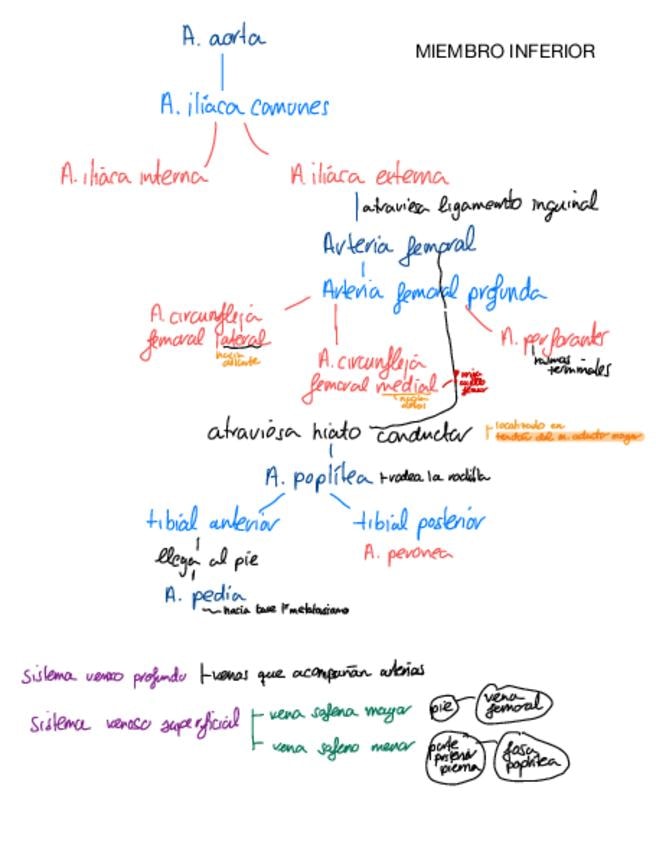 A. aorta
MIEMBRO INFERIOR
A. ilíaca comunes
A. ilíaca interna
A. ilíaca externa
atraviesa ligamento inguinal
Arteria femoral
Arteria femoral profunda
A. circunfleja
femoral lateral
hacia
delante
A. circunfleja
femoral medial
hacia
A. perforantes
ramas
terminales
atraviesa hiato conductor
localizado en
tendón del m. aductor mayor
A. poplítea rodea la rodilla
tibial anterior
tibial posterior
llega al pie
A. peronea
A. pedia
hacia base 1º metatarsiano
Sistema venoso profundo venas que acompañan arterias
Sistema venoso superficial
vena safena mayor
pie
vena
femoral
vena safena menor
parte
posterior
pierna
fosa
poplítea